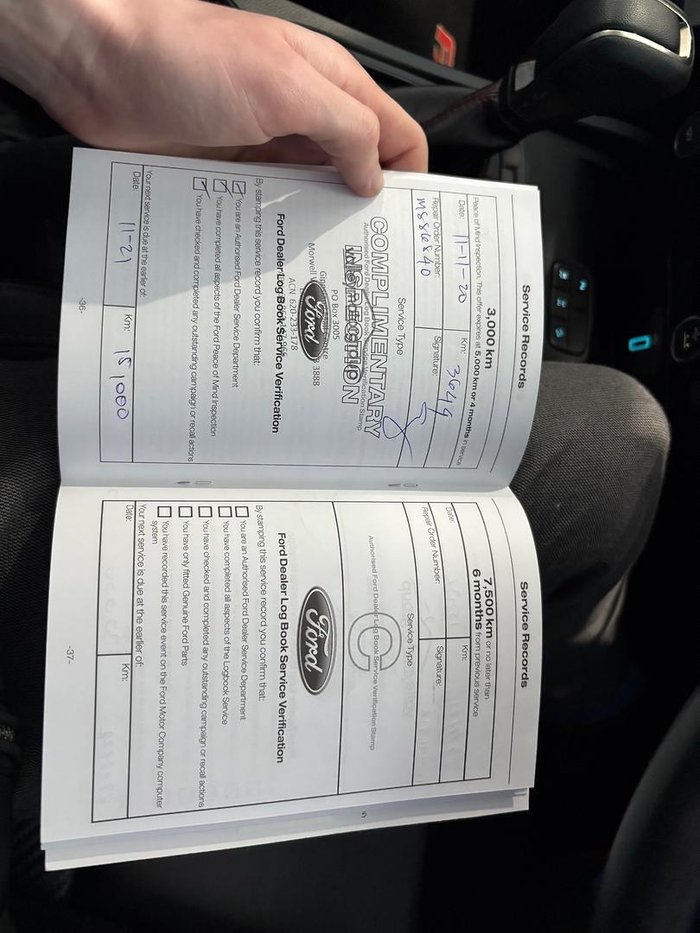 Service Records
3,000 km
Peace of Mind Inspection. This offer expires at 5,000 km or 4 months in service
Date: 11-11-20 Km: 3644
Repair Order Number: Signature:
M886840
Service Type
COMPLIMENTARY
Authorised Ford Dealer Log Book Service Verification Stamp
INSPECTION
PO Box 3005
Morwell 3888
Ford
ACN 620-233-178
Ford Dealer Log Book Service Verification
By stamping this service record you confirm that:
You are an Authorised Ford Dealer Service Department
You have completed all aspects of the Ford Peace of Mind Inspection
You have checked and completed any outstanding campaign or recall actions
Your next service is due at the earlier of:
Date: 11-21 Km: 15,000
-36-
Service Records
7,500 km or no later than
6 months from previous service
Date: Km:
Repair Order Number: Signature:
Service Type
C
Authorised Ford Dealer Log Book Service Verification Stamp
Ford
Ford Dealer Log Book Service Verification
By stamping this service record you confirm that:
You are an Authorised Ford Dealer Service Department
You have completed all aspects of the Logbook Service
You have checked and completed any outstanding campaign or recall actions
You have only fitted Genuine Ford Parts
You have recorded this service event on the Ford Motor Company computer
system
Your next service is due at the earlier of:
Date: Km:
-37-